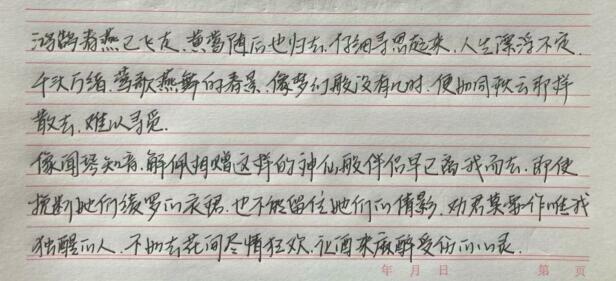 鸿鹄春燕已飞走,黄莺随后也归去.仔细寻思起来,人生漂浮不定.
千头万绪,莺歌燕舞的春景,像梦幻般没有几时,便如同秋云那样
散去,难以寻觅.
像闻琴知音,解佩相赠这样的神仙般伴侣早已离我而去.即使
挽断她们绫罗的衣裙.也不能留住她们的倩影.劝君莫要作唯我
独醒的人.不如去花间尽情狂欢,让酒来麻醉受伤的心灵.
年 月 日 第 页